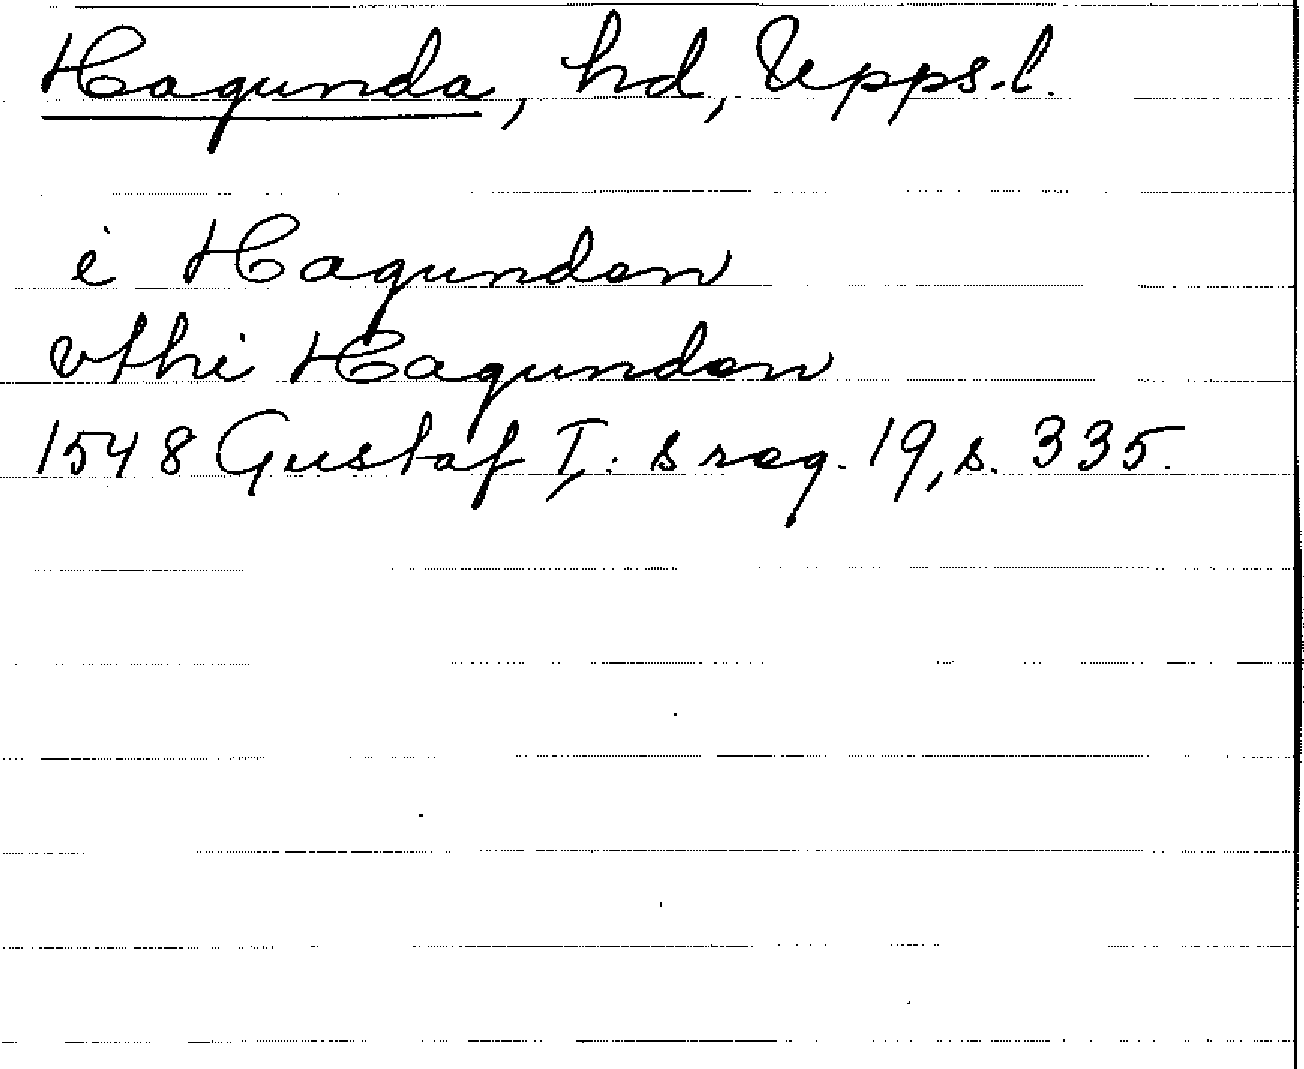 Hagunda, hd, Upps.l.
i Hagunden
vthi Hagunden
1548 Gustaf I: s reg. 19, s. 335.